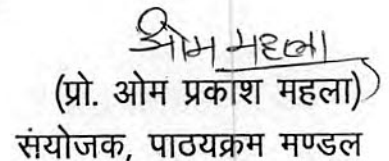 ओम महला
(प्रो. ओम प्रकाश महला)
संयोजक, पाठयक्रम मण्डल